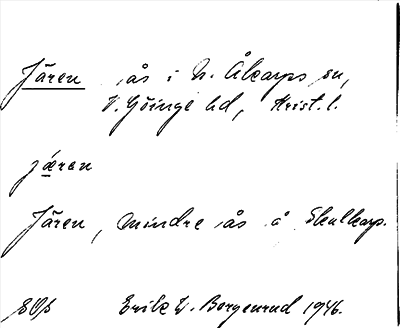 Jären ås i N. Åkarps sn,
V. Göinge hd, Krist. l.
jæ̀ren
Jären, mindre ås å Skulkarp.
Erik W. Borgenrud 1946.